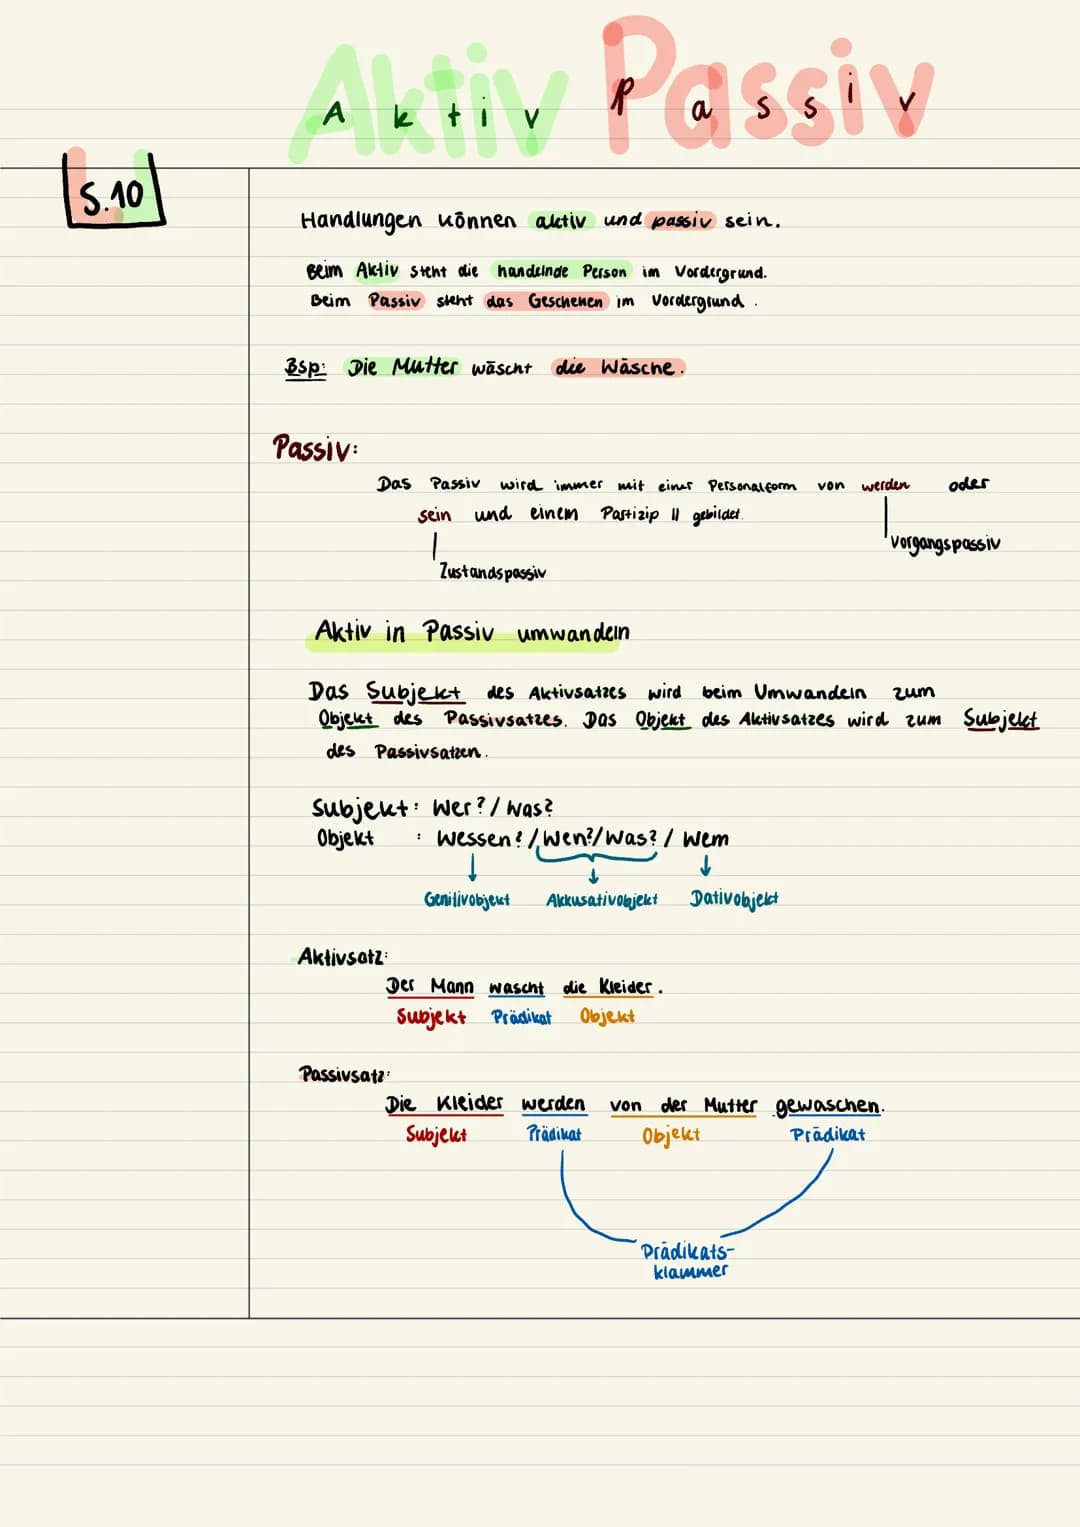 Aktiv Passiv
A k t i v P a s s i v
S. 10
Handlungen können aktiv und passiv sein.
Beim Aktiv steht die handelnde Person im Vordergrund.
Beim Passiv steht das Geschehen im Vordergrund.
Bsp: Die Mutter wäscht die Wäsche.
Passiv:
Das Passiv wird immer mit einer Personalform von werden oder
sein und einem Partizip II gebildet.
Vorgangspassiv
Zustandspassiv
Aktiv in Passiv umwandeln
Das Subjekt des Aktivsatzes wird beim Umwandeln zum
Objekt des Passivsatzes. Das Objekt des Aktivsatzes wird zum Subjekt
des Passivsatzen.
Subjekt: Wer?/Was?
Objekt : Wessen?/Wen?/Was?/Wem
Genitivobjekt Akkusativobjekt Dativobjekt
Aktivsatz:
Der Mann wascht die Kleider.
Subjekt Prädikat Objekt
Passivsatz:
Die Kleider werden von der Mutter gewaschen.
Subjekt Prädikat Objekt Prädikat
Prädikats-
klammer